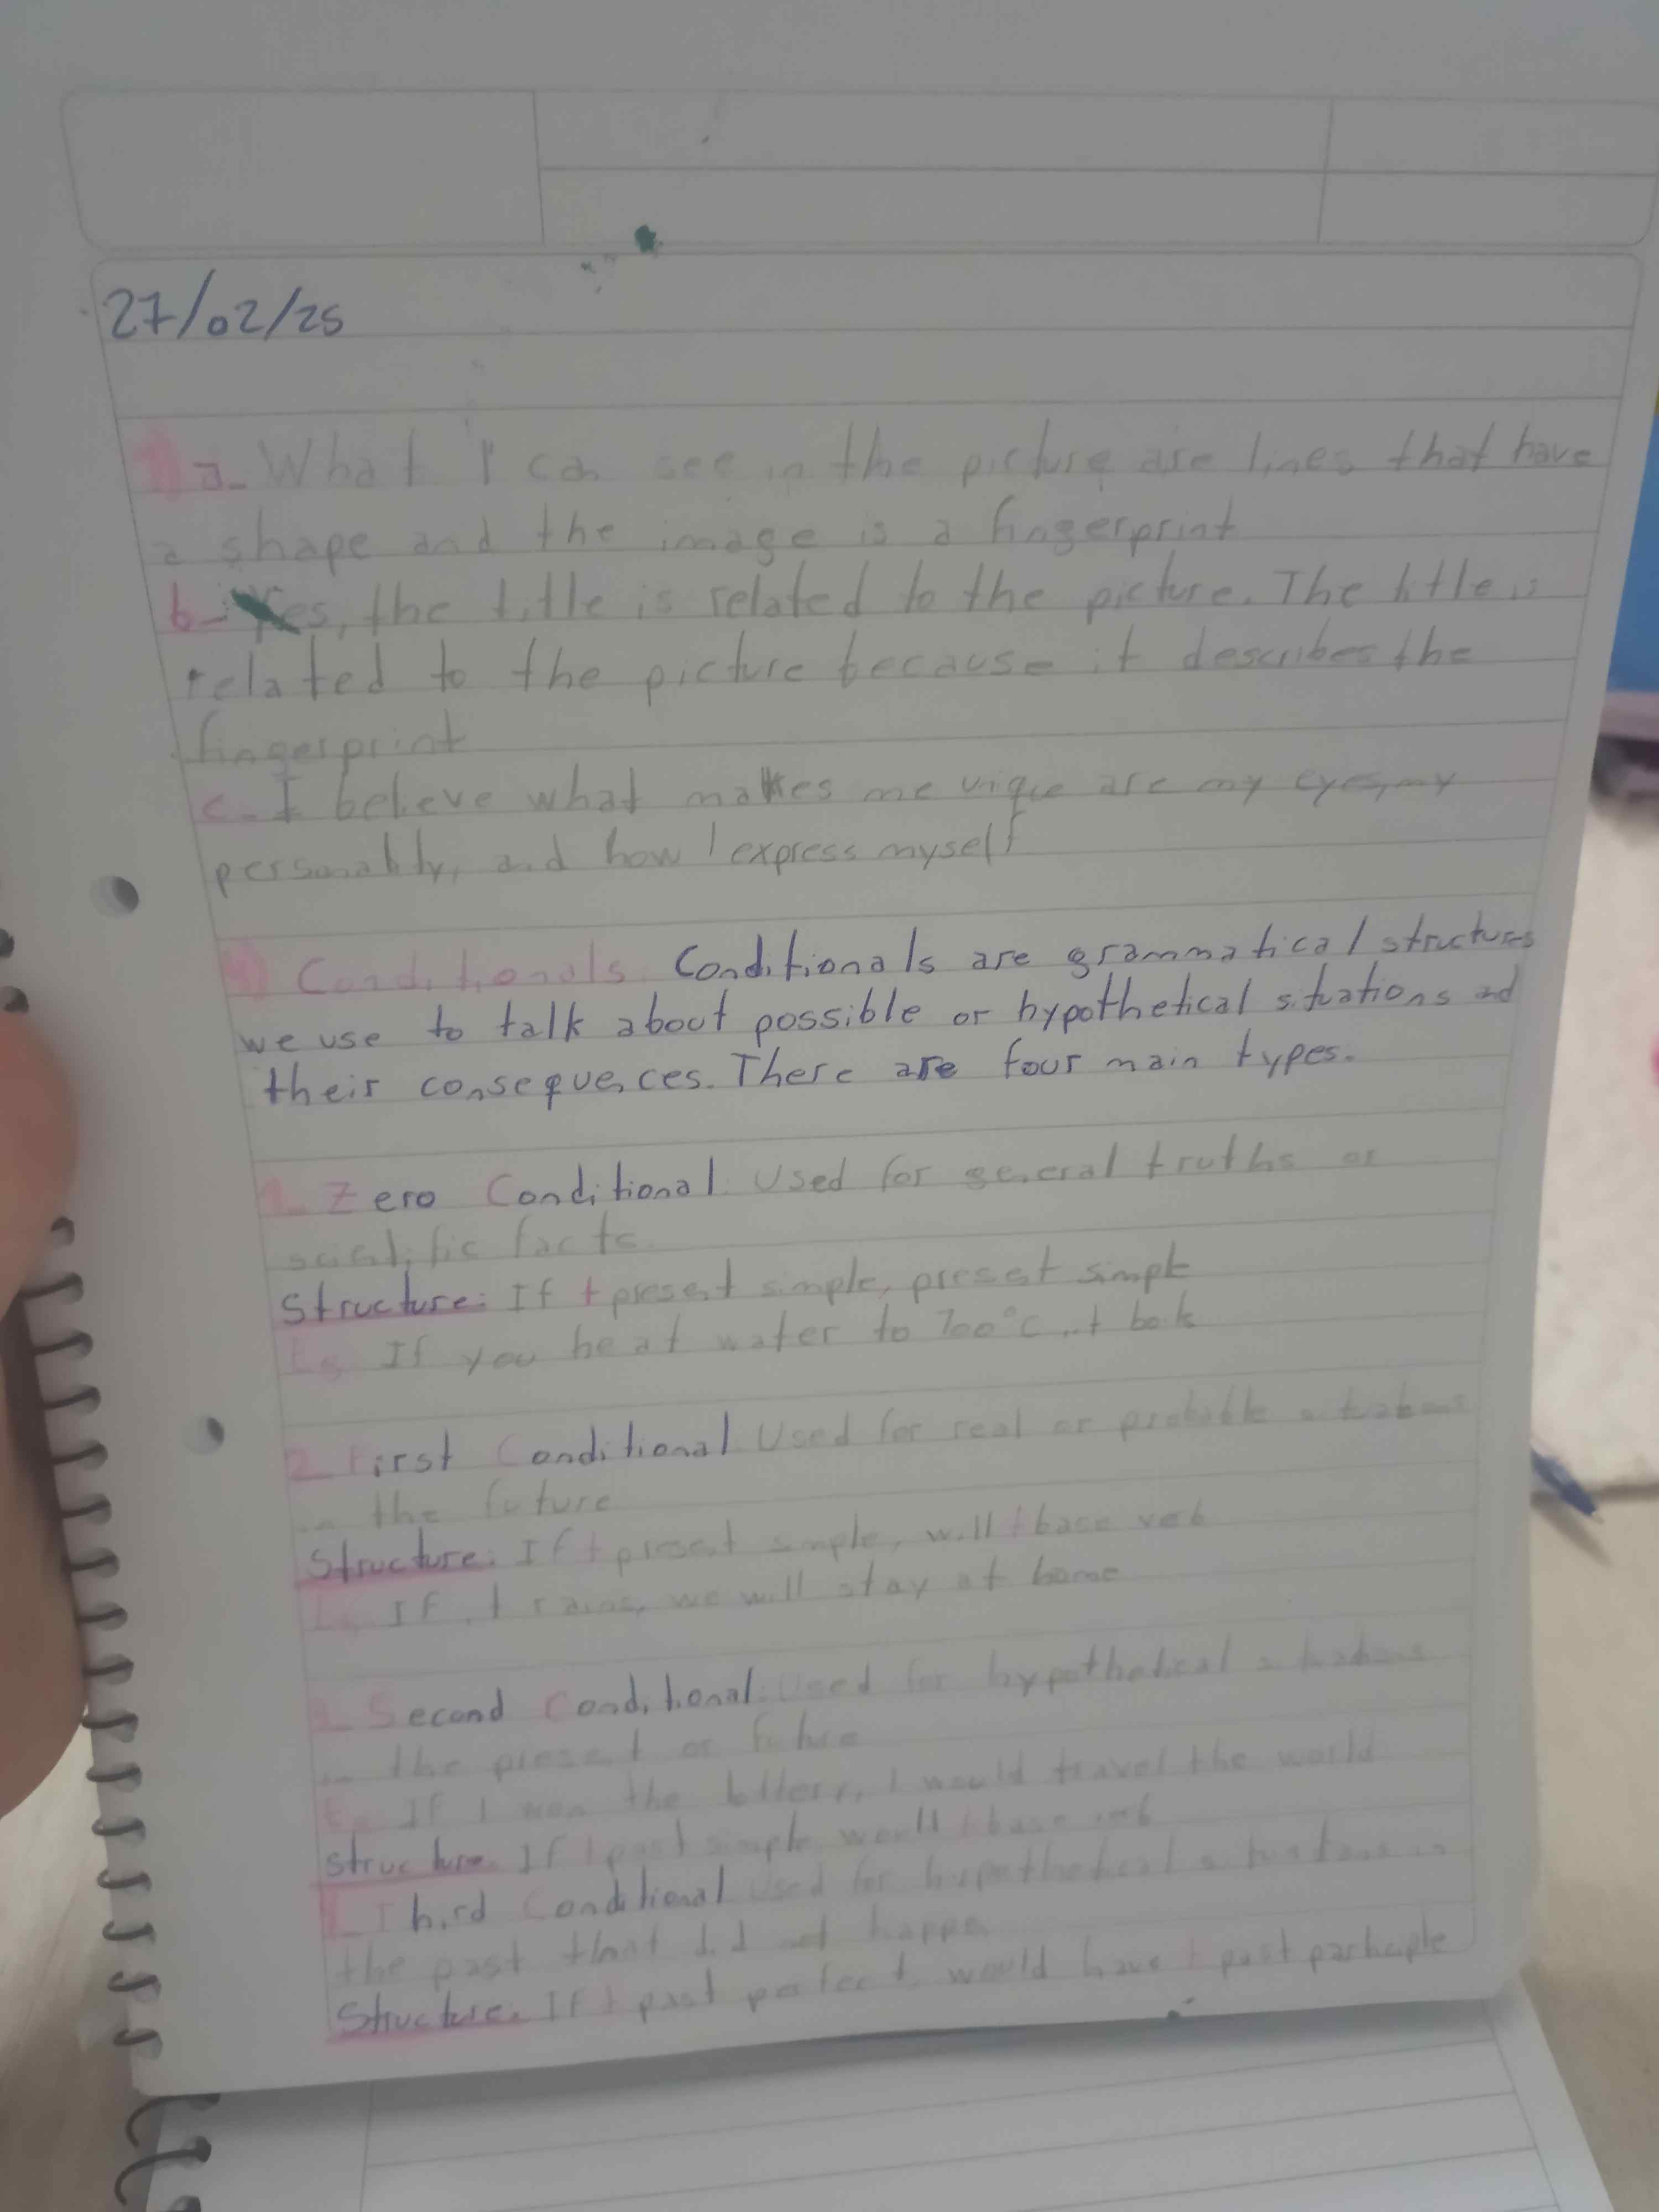 27/02/25
1) a- What I can see in the picture are lines that have
a shape and the image is a fingerprint
b- Yes, the title is related to the picture. The title is
related to the picture because it describes the
fingerprint
c- I believe what makes me unique are my eyes, my
personality, and how I express myself
Conditionals: Conditionals are grammatical structures
we use to talk about possible or hypothetical situations and
their consequences. There are four main types.
1- Zero Conditional: Used for general truths or
scientific facts.
Structure: If + present simple, present simple
Eg If you heat water to 100°C it boils
2- First Conditional Used for real or probable situations
in the future
Structure: If + present simple, will + base verb
Eg If it rains, we will stay at home
3- Second Conditional: Used for hypothetical situations
in the present or future
Eg If I won the lottery, I would travel the world
Structure. If + past simple, would + base verb
4- Third Conditional Used for hypothetical situations in
the past that did not happen
Structure. If + past perfect, would have + past participle